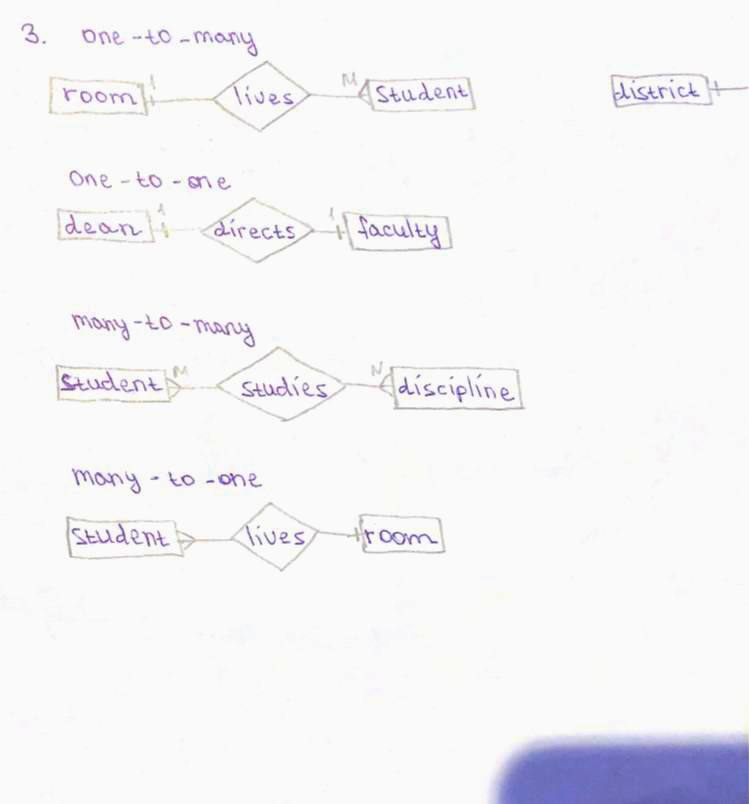 3. one-to-many
1 M
room lives Student district
one-to-one
1 1
dean directs faculty
many-to-many
M N
Student studies discipline
many-to-one
student lives room